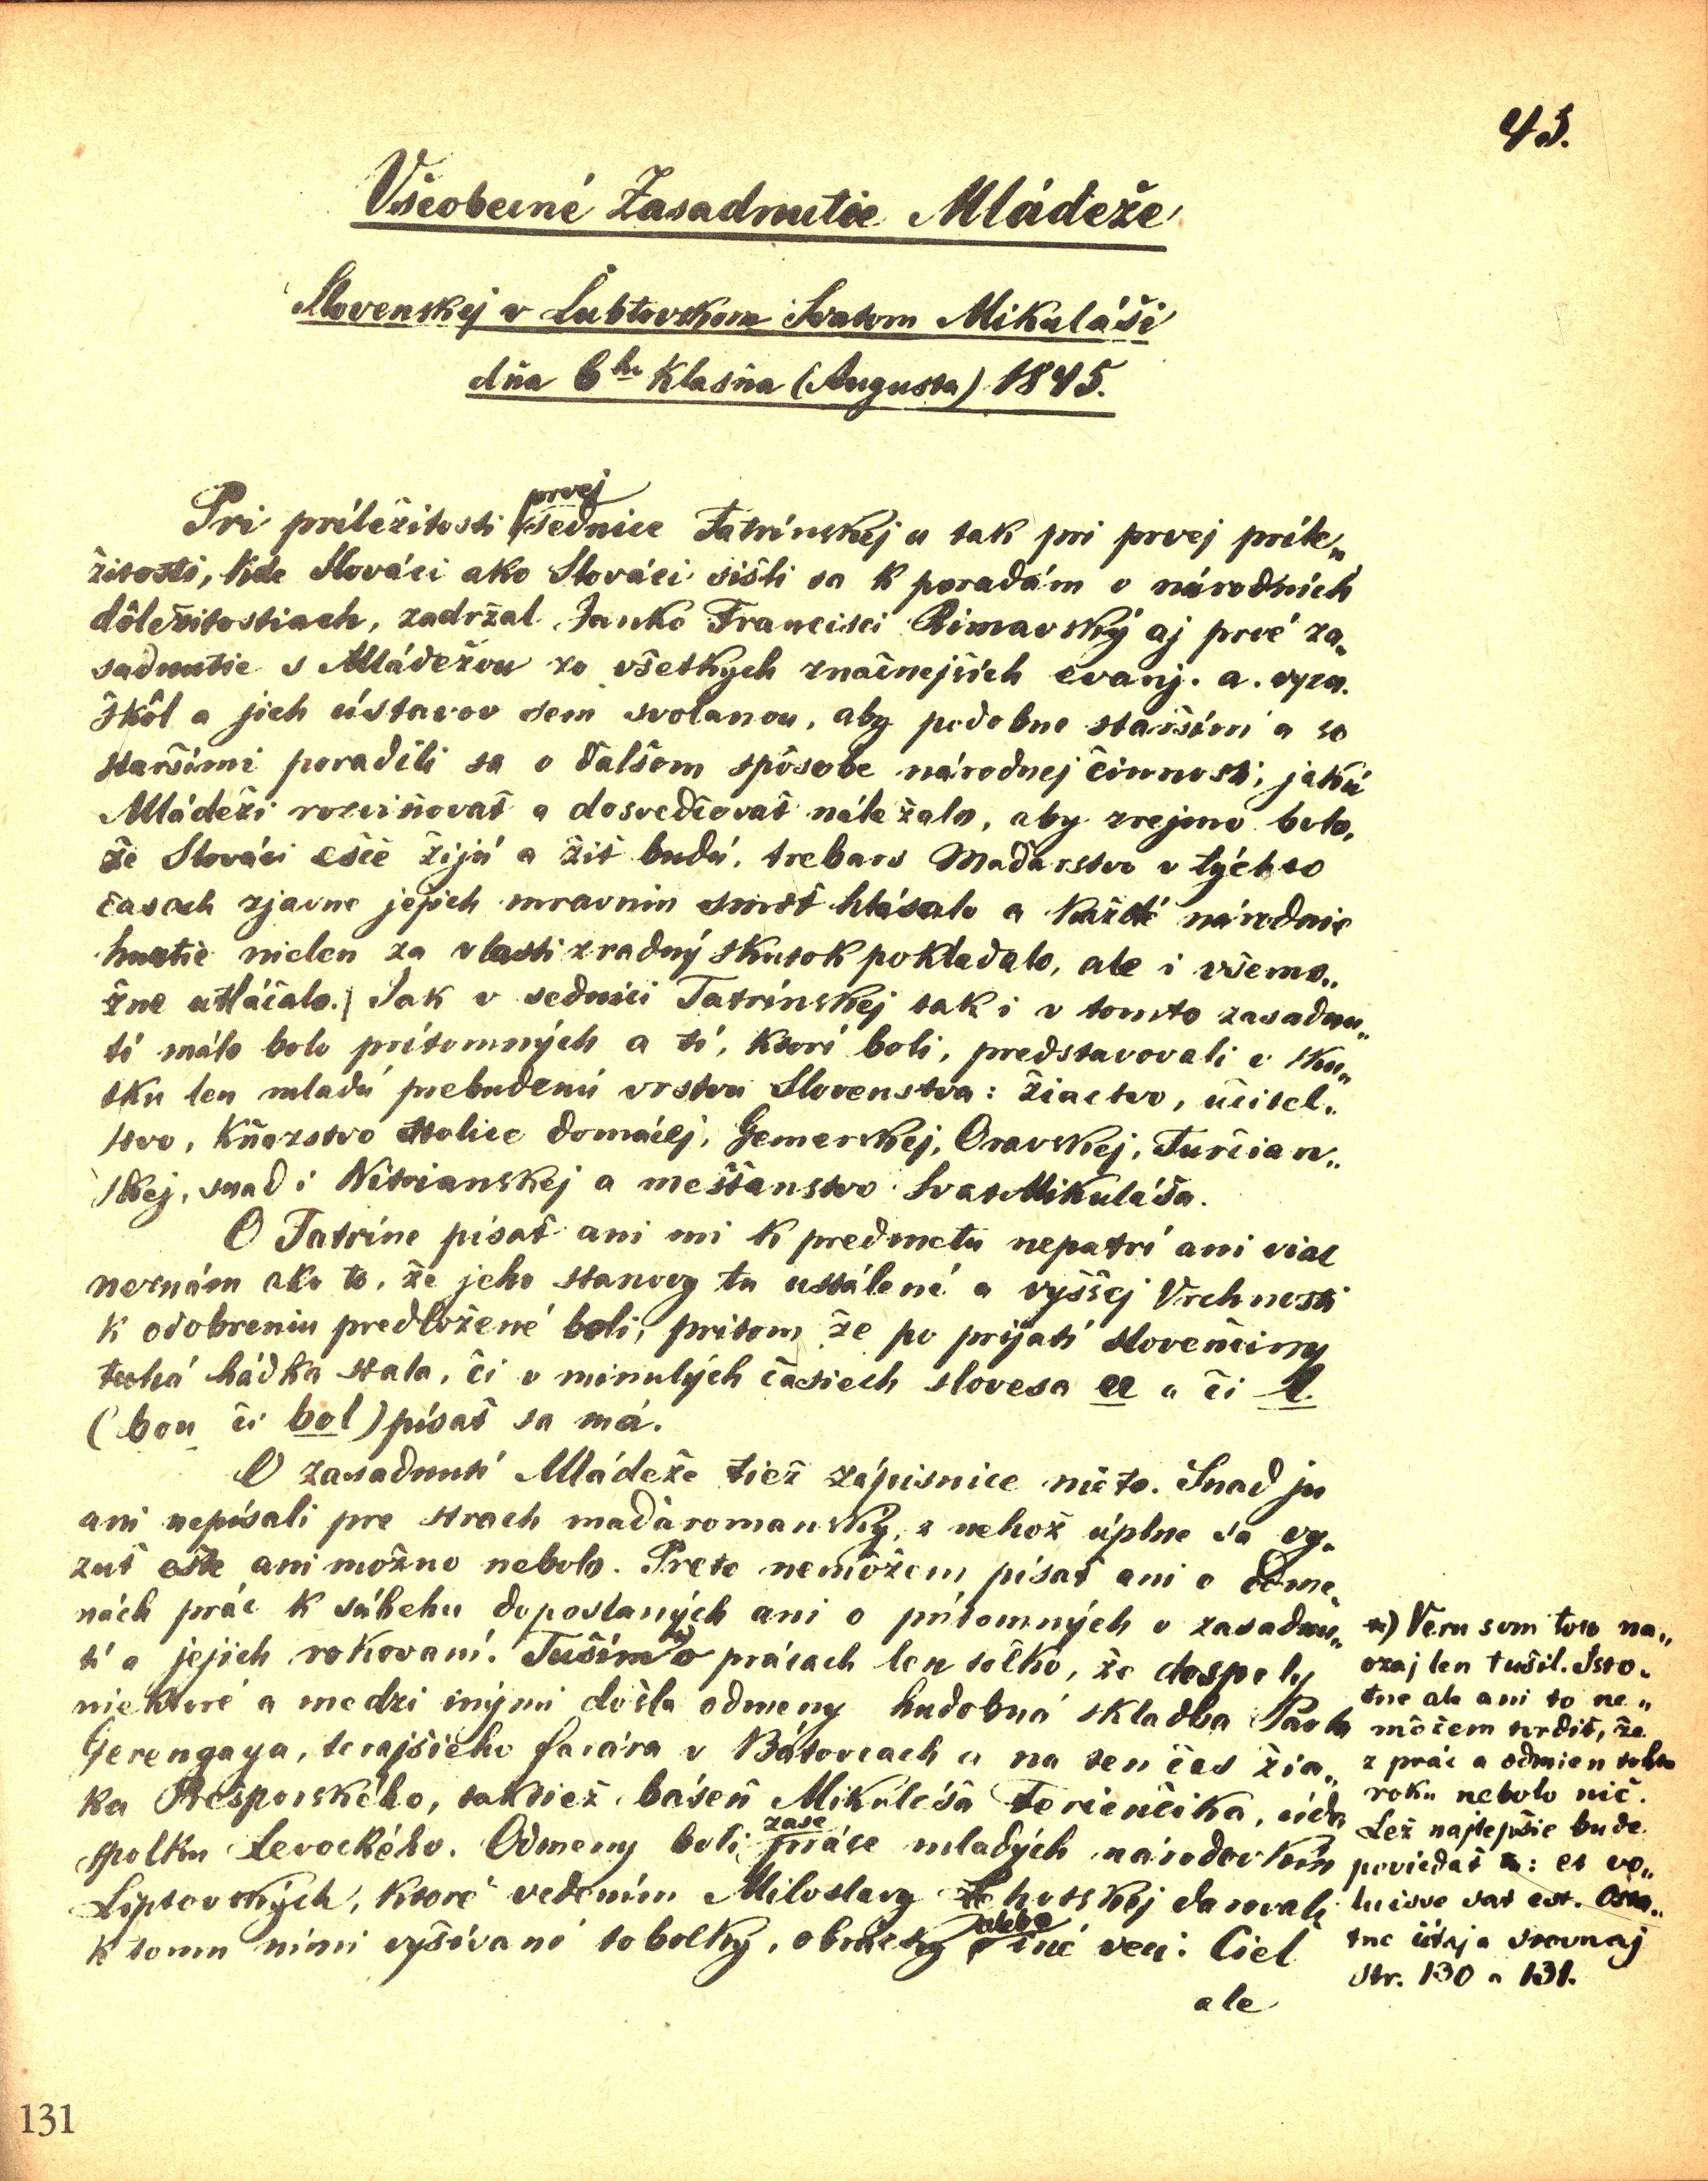 43.
Všeobecné Zasadnutie Mládeže
Slovenskej v Lubtovskom Svatom Mikuláši
dňa 6ho Klasňa (Augusta) 1845.
Pri príležitosti prvej sednice Tatrínskej a tak pri prvej príle„
žitosti, kde Slováci ako Slováci sišli sa k poradám o národních
dôležitostiach, zadržal Janko Francisci Rimavský aj prvé za„
sadnutie s Mládežou zo všetkých značnejších evanj. a. vyzn.
škôl a jich ústavov sem svolanou, aby podobne staršími a so
staršími poradili sa o ďalšom spôsobe národnej činnosti, jakú
Mládeži rozvinovať a dosvedčovať náležalo, aby zrejmo bolo,
že Slováci ešče žijú a žiť budú, trebars Maďarstvo v týchto
časoch zjavne jejich mravnin smrť hlásalo a každé národnie
hnutie nielen za vlastizradný skutok pokladalo, ale i všemo„
žne utláčalo. Jak v sednici Tatrínskej tak i v tomto zasadnu„
tí málo bolo prítomných a tí, ktorí boli, predstavovali v sku„
tku len mladú prebudenú vrstvu Slovenstva: žiactvo, učitel„
stvo, kňazstvo stolice domácej, Gemerskej, Oravskej, Turčian„
skej, snaď i Nitrianskej a mešťanstvo Svat Mikuláša.
O Tatríne písať ani mi k predmetu nepatrí ani viac
neznám ako to, že jeho stanovy tu ustálené a vyššej Vrchnosti
k odobreniu predložené boli, pritom že po prijatí slovenčiny
tuhá hádka stala, či v minulých časiech slovesa u a či l
(bou či bol) písať sa má.
O zasadnutí Mládeže tiež zápisnice nieto. Snaď ju
ani nepísali pre strach maďaromanský, z nehož úplne sa vy„
zuť ešte ani možno nebolo. Preto nemôžem písať ani o odme„
nách prác k súbehu doposlaných ani o prítomných v zasadnu„
tí a jejich rokovaní. Tuším *) o prácach len toľko, že dospely
niektoré a medzi inými došla odmeny hudobná skladba Pavla
Gerengaya, terajšieho farára v Bátovciach a na ten čas žia„
ka Prešporského, taktiež báseň Mikuláša Ferienčika, úda
spolku Levockého. Odmeny boli zase práce mladých národovkíň
Liptovských, ktoré vedením Miloslavy Lehotskej darovali
k tomu nimi vyšívané tobolky, obrázky alebo iné veci. Ciel
ale
*) Veru som toto na„
ozaj len tušil. Isto„
tne ale ani to ne„
môžem tvrdiť, že
z prác a odmien toho
roku nebolo nič.
Lež najlepšie bude
poviedať: et vo„
luisse sat est. Osta„
tne údaje srovnaj
str. 130 a 131.
131